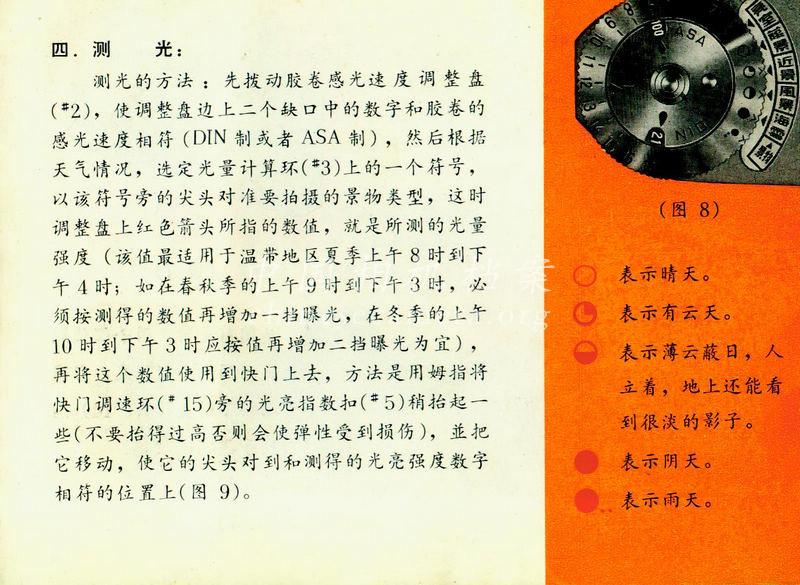 四．测　光：
测光的方法：先拨动胶卷感光速度调整盘
(#2)，使调整盘边上二个缺口中的数字和胶卷的
感光速度相符(DIN制或者ASA制)，然后根据
天气情况，选定光量计算环(#3)上的一个符号，
以该符号旁的尖头对准要拍摄的景物类型，这时
调整盘上红色箭头所指的数值，就是所测的光量
强度（该值最适用于温带地区夏季上午8时到下
午4时；如在春秋季的上午9时到下午3时，必
须按测得的数值再增加一挡曝光，在冬季的上午
10时到下午3时应按值再增加二挡曝光为宜），
再将这个数值使用到快门上去，方法是用姆指将
快门调速环(#15)旁的光亮指数扣(#5)稍抬起一
些(不要抬得过高否则会使弹性受到损伤)，並把
它移动，使它的尖头对到和测得的光亮强度数字
相符的位置上(图9)。
100
ASA
21
DIN
8
9
10
11
12
13
近景
(图8)
表示晴天。
表示有云天。
表示薄云蔽日，人
立着，地上还能看
到很淡的影子。
表示阴天。
表示雨天。